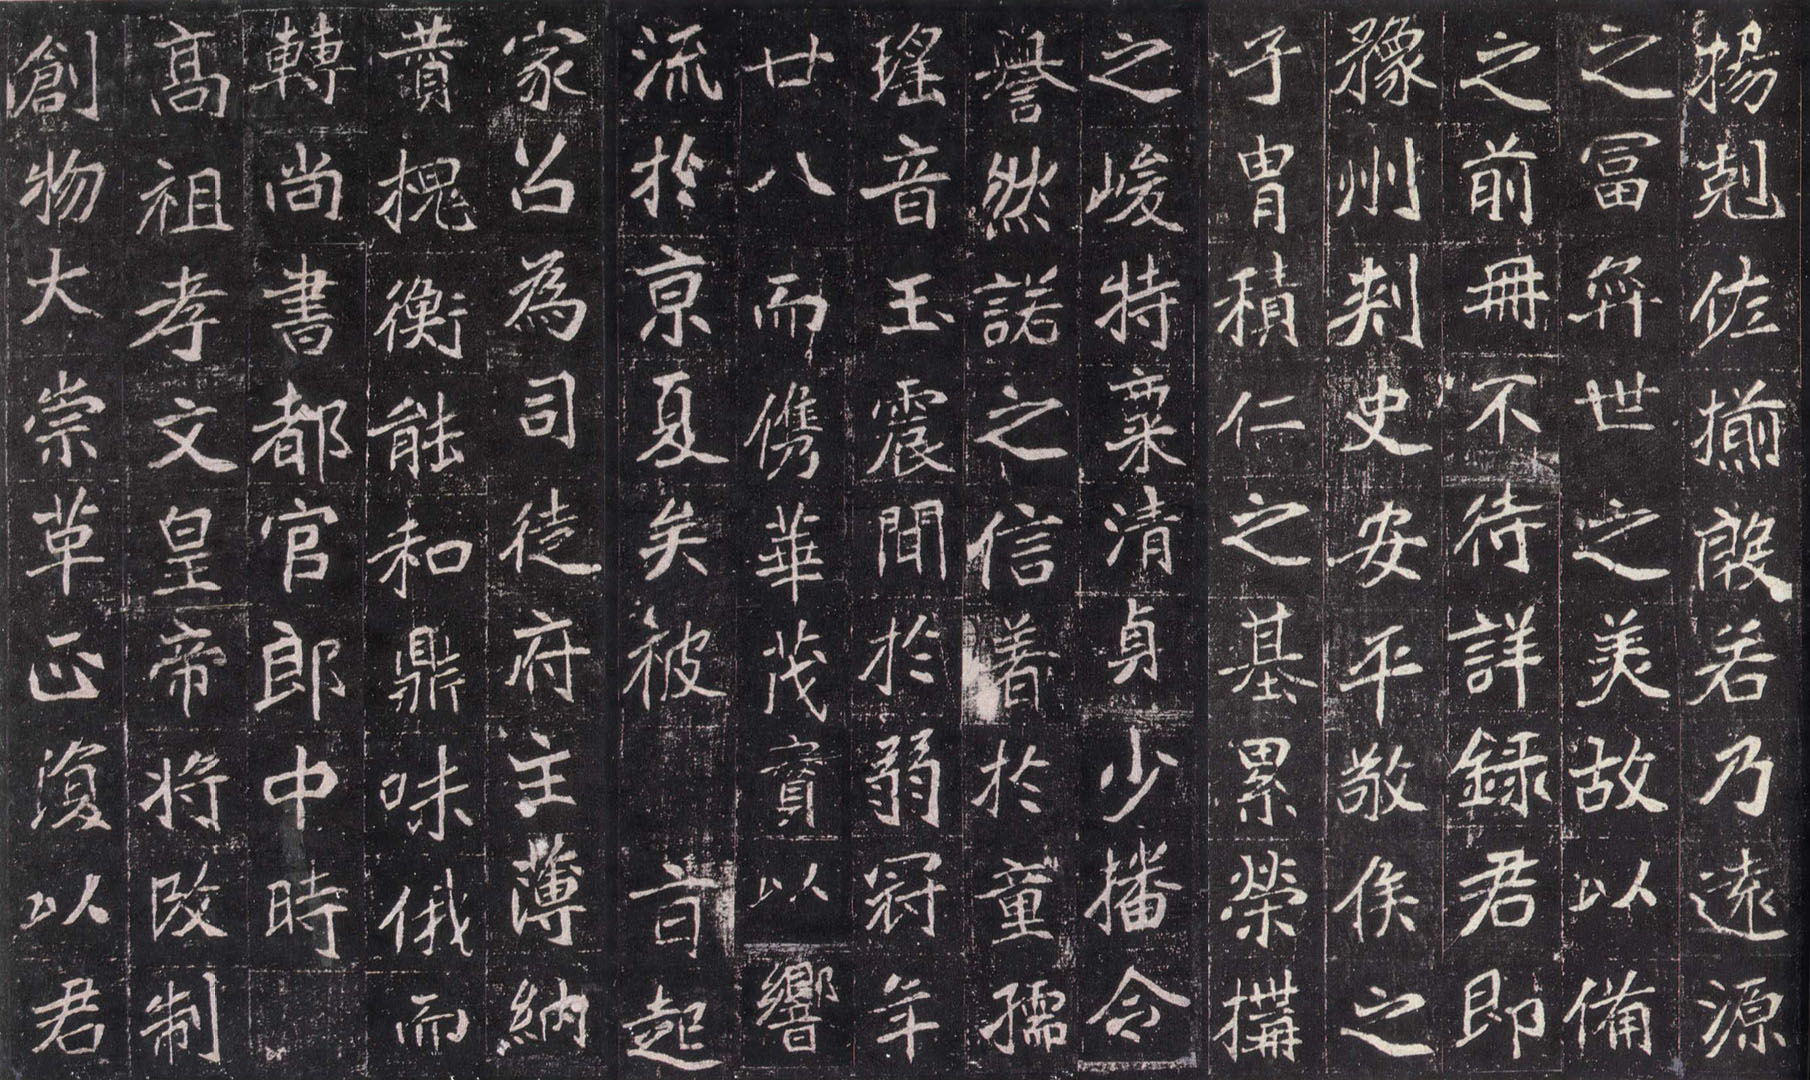 揚剋佐揃殷若乃遠源
之冨弈世之美故以備
之前冊不待詳録君即
豫州刺史安平敬侯之
子胄積仁之基累榮構
之峻特稟清貞少播令
譽然諾之信著於童孺
瑤音玉震聞於弱冠年
廿八而儁華茂實以響
流於京夏矣被旨起
家召為司徒府主薄納
賛槐衡能和鼎味俄而
轉尚書都官郎中時
高祖孝文皇帝將改制
創物大崇革正復以君